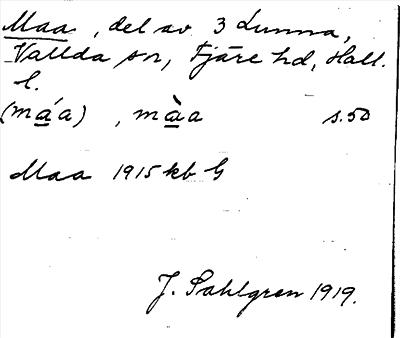 Maa, del av 3 Lunna,
Vallda sn, Fjäre hd, Hall.
l.
(máa), màa s. 50
Maa 1915 kb G
J. Sahlgren 1919.